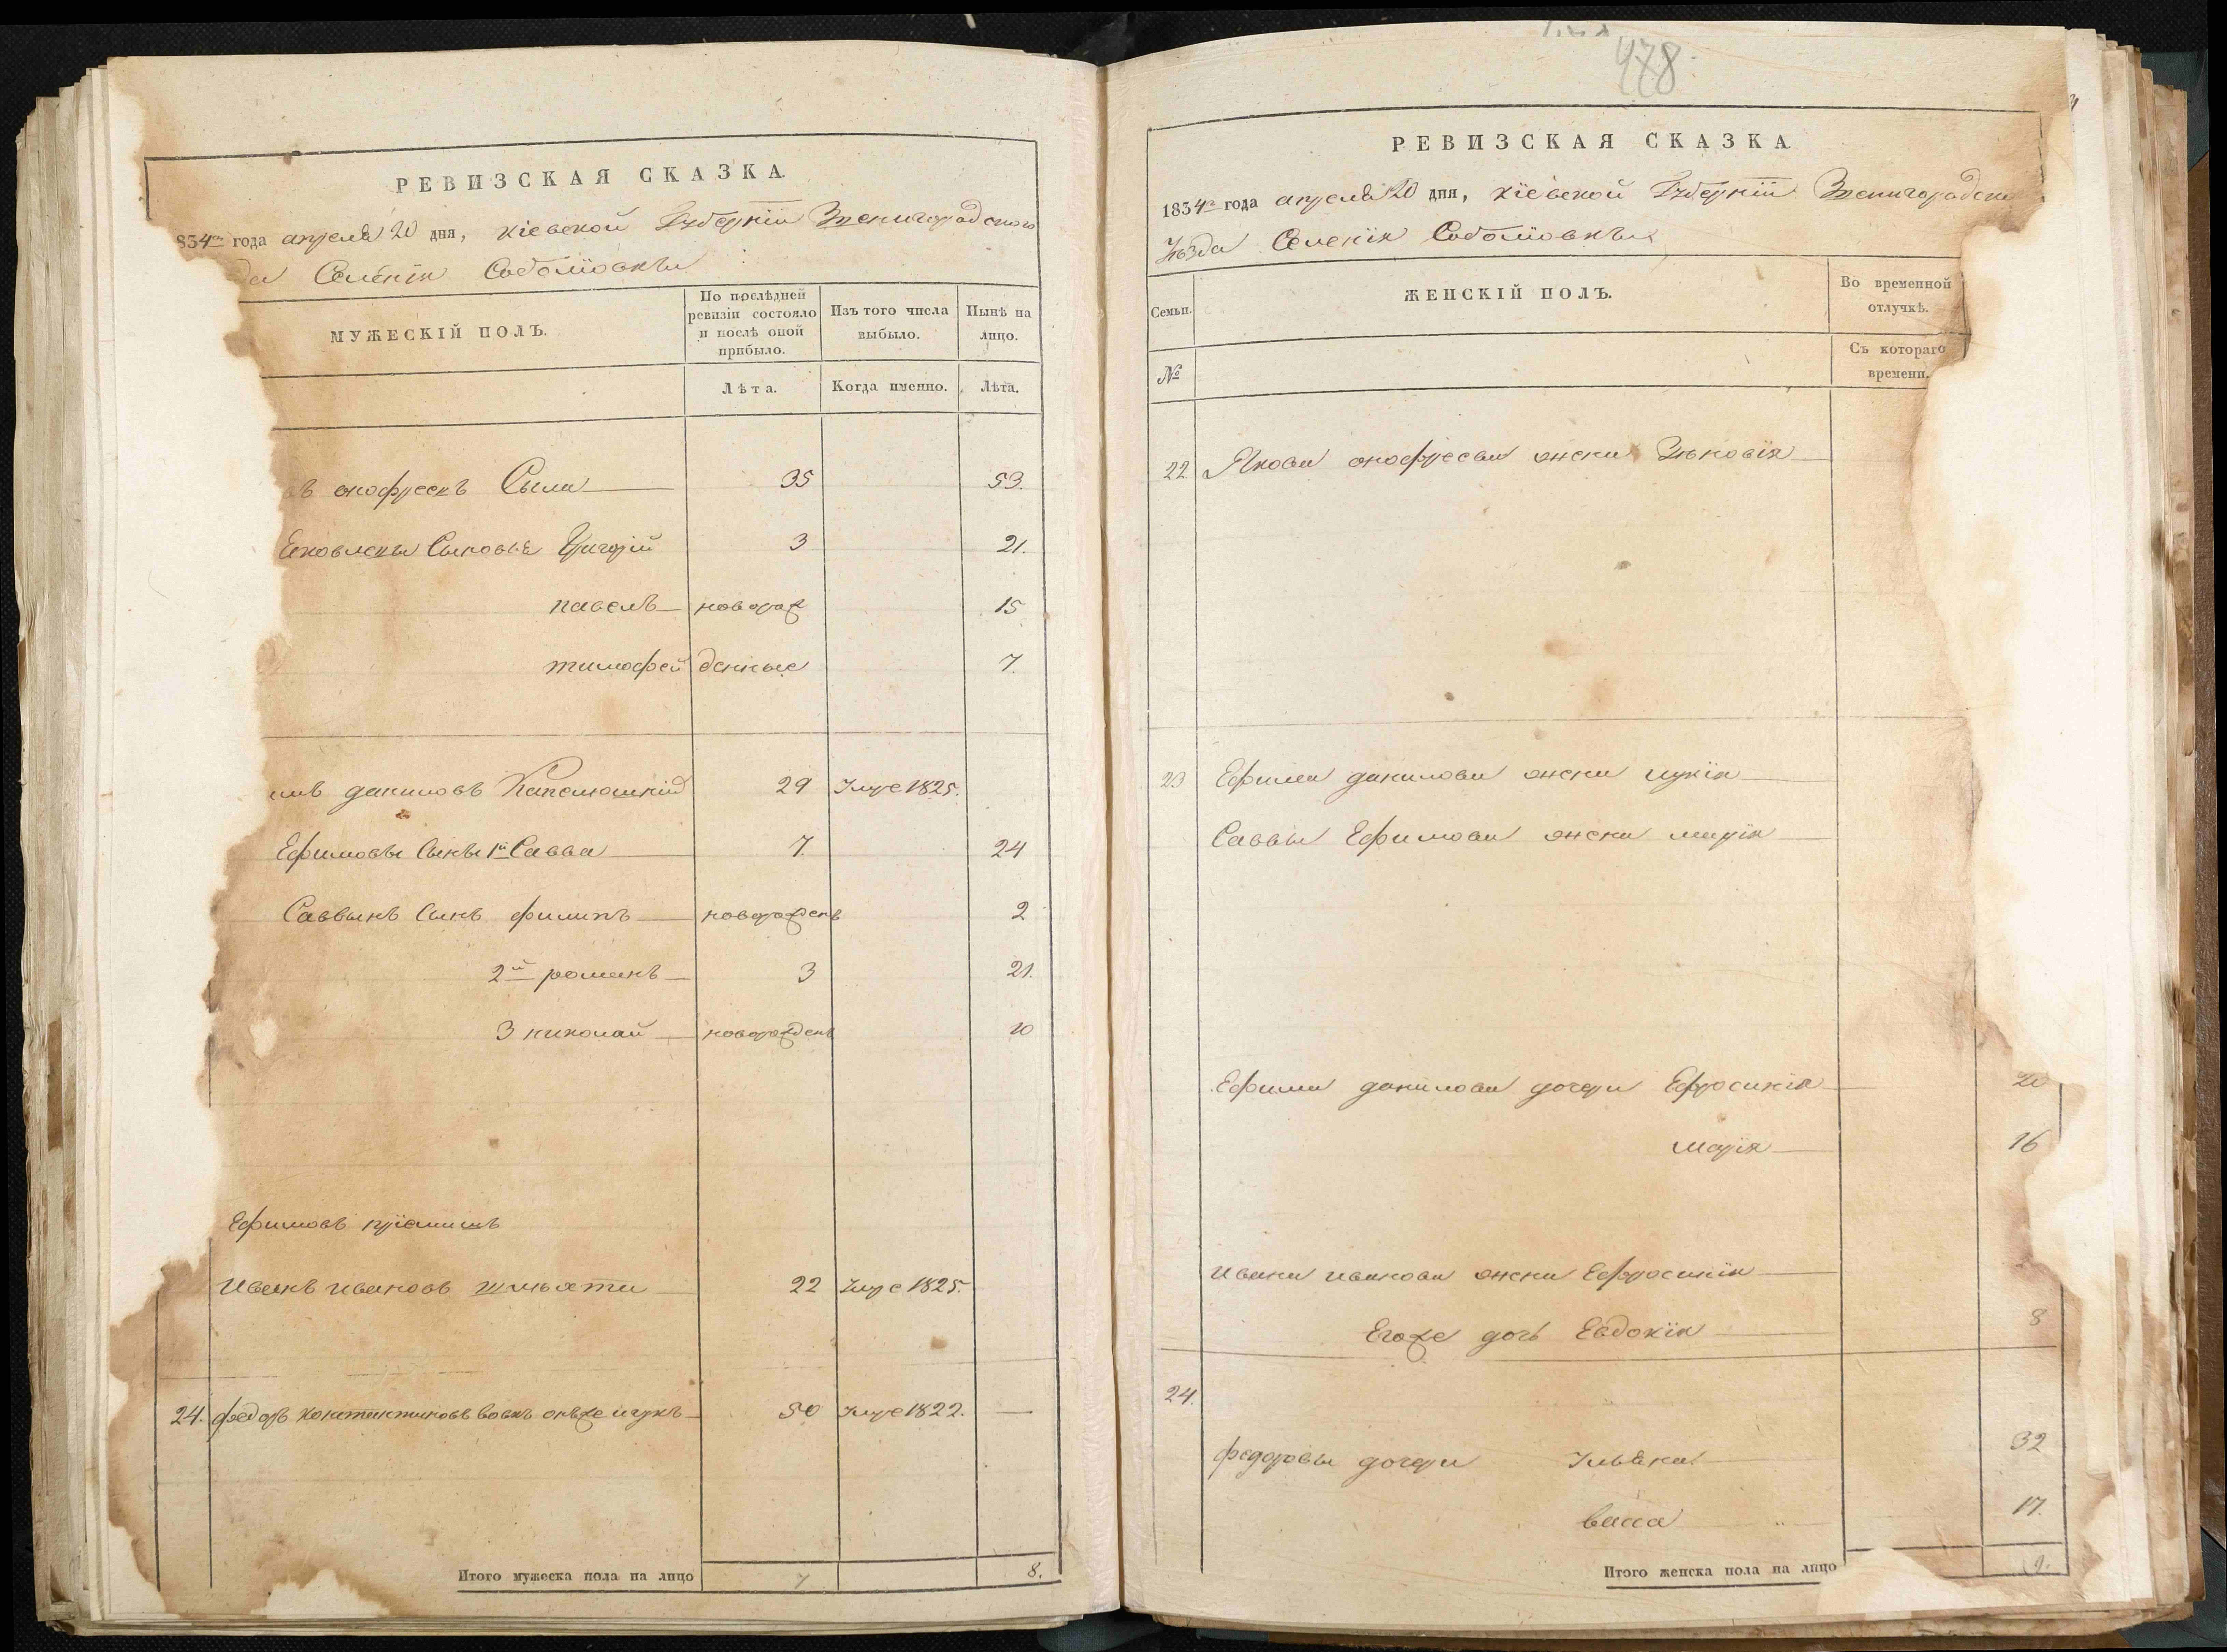 РЕВИЗСКАЯ СКАЗКА
834го года апреля 20 дня, Кіевской Губерніи Звенигородского
да Селенія Соболювки
МУЖЕСКІЙ ПОЛЪ.
По послѣдней ревизіи состояло и послѣ оной прибыло.
Изъ того числа выбыло.
Нынѣ на лицо.
Лѣта.
Когда именно.
Лѣта.
въ онофреевъ 35 53.
Яковлевы Сыновья Григорій 3 21.
павелъ новорож 15
тимофей денные 7.
имъ даниловъ 29 Умре 1825.
Ефимовы Сыны 1й Савва 7. 24
Саввинъ Сынъ филипъ новорожденъ 2
2й романъ 3 21.
3 николай новорожденъ 10
Ефимовъ пріемишъ
Иванъ Ивановъ 22 Умре 1825.
24. федоръ Константиновъ вовкъ онъже 50 Умре 1822. —
Итого мужеска пола на лицо 7 8.
478
РЕВИЗСКАЯ СКАЗКА
1834го года апреля 20 дня, Кіевской Губерніи Звенигородско
Уѣзда Селенія Соболювки
Семьи.
ЖЕНСКІЙ ПОЛЪ.
Во временной отлучкѣ.
№
Съ котораго времени.
22 Якова онофреева жена Зѣновія
23 Ефима данилова жена
Саввы Ефимова жена марія
Ефима данилова дочери Ефросинія 20
марія 16
Ивана Иванова жена Ефросинія
Егоже дочь Евдокія 8
24.
федоровы дочери 32
17.
Итого женска пола на лицо 9.